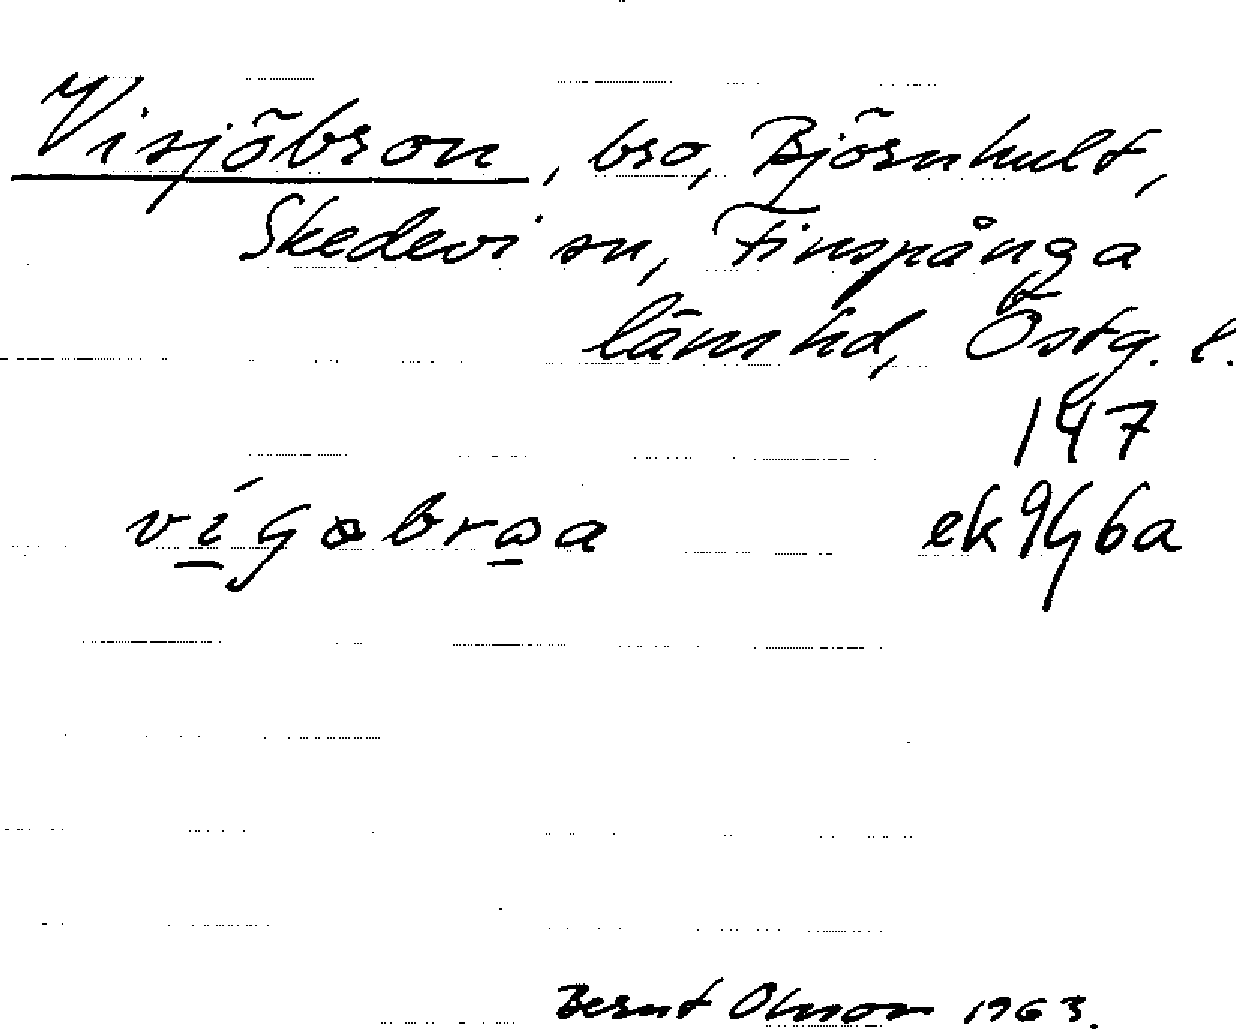 Visjöbron, bro, Björnhult,
Skedevi sn, Finspånga
läns hd, Östg. l.
147
ek 9G 6a
Bernt Olsson 1963.